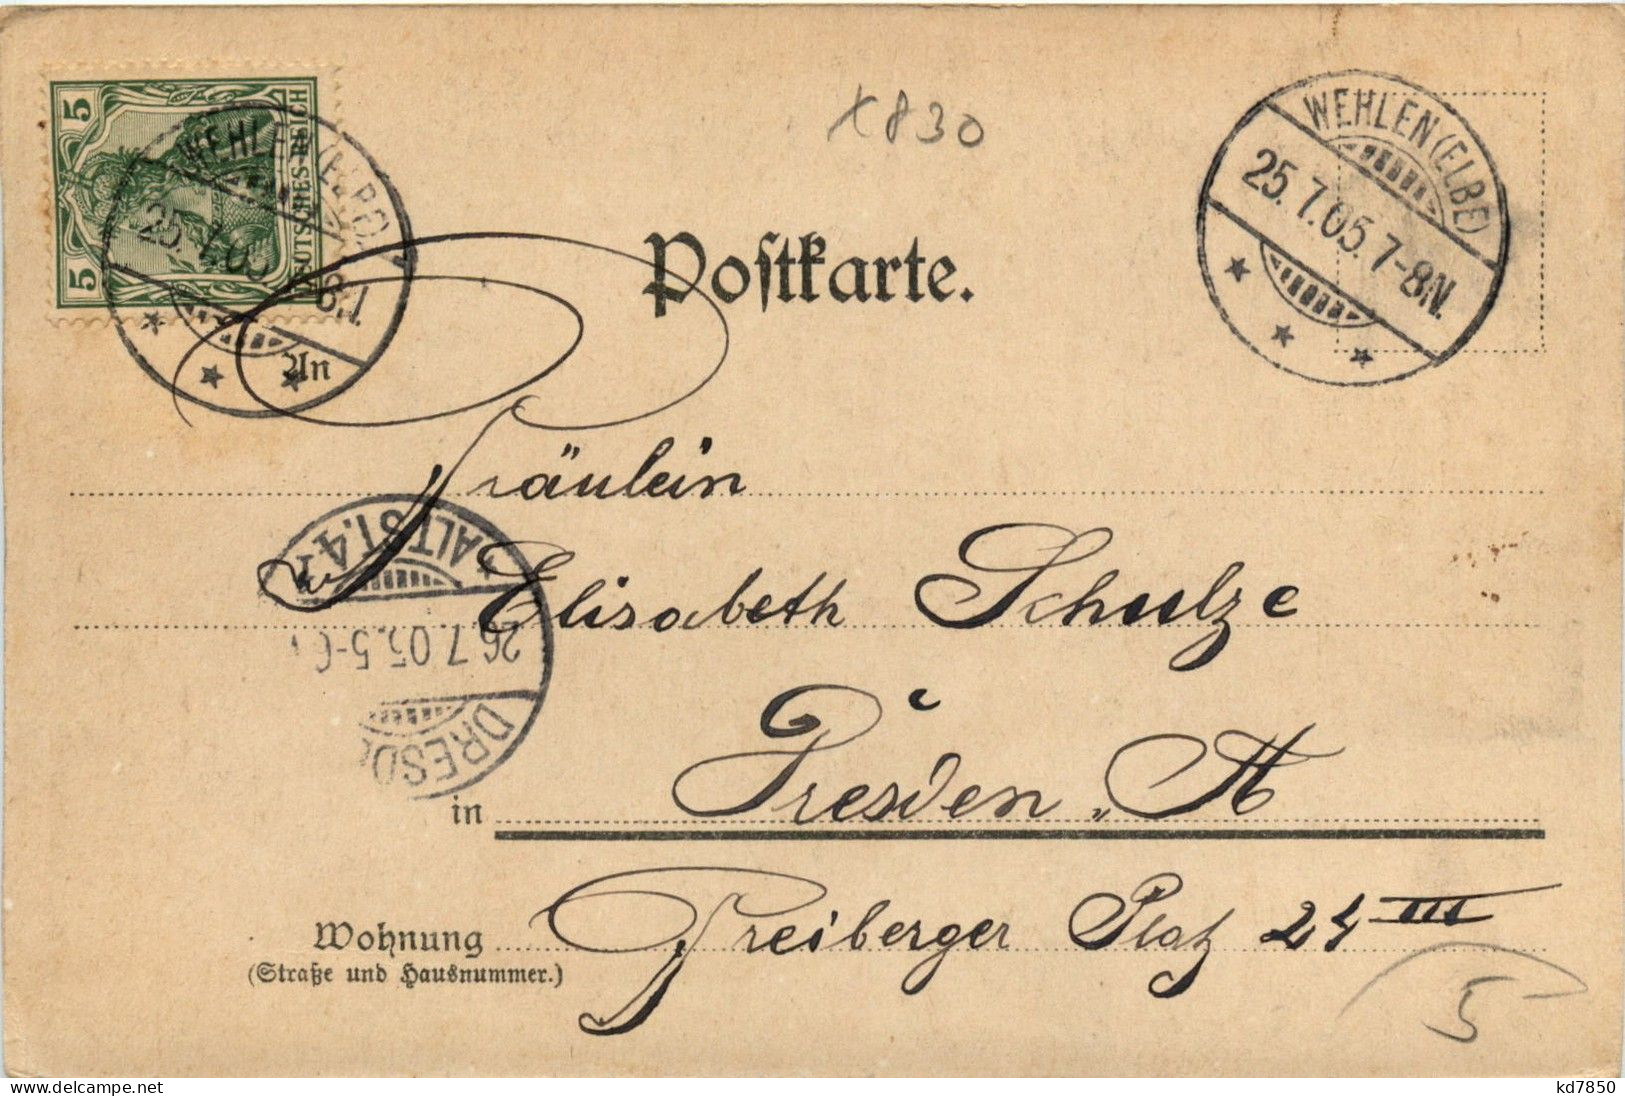 5
5
DEUTSCHES REICH
WEHLEN (ELBE)
25.7.05.
WEHLEN (ELBE)
25.7.05.7-8N.
x830
Postkarte.
An
Fräulein
Elisabeth Schulze
in Dresden, A
Wohnung Freiberger Platz 24 III
(Straße und Hausnummer.)
* ALTST. 4
26.7.05. 5-6
DRESD
5
delcampe.net
kd7850